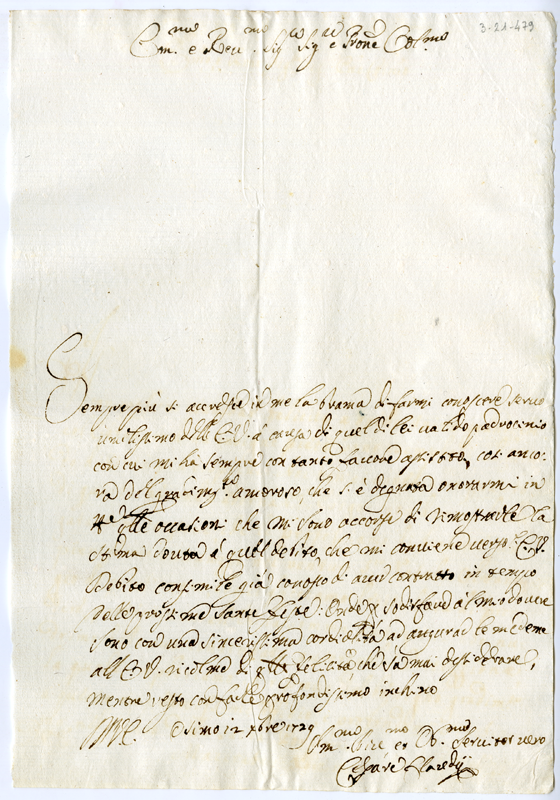 3-21-479
Em.mo e Reu.mo Sig. Sig. e Prone Col.mo
Sempre più si accresce in me la brama di farmi conoscere seruo
umilissimo dell' E.V. a causa di quel di lei ualido padrocinio
con cui mi hà sempre con tanto fauore assistito, così anco-
ra del amoroso, che si è degnata onorarmi in
tte qlle occasioni che mi sono accorse di rimostrarle la
stima douta à quel debito, che mi conuiene uerso l'E.V.
Debito conosco di auer contratto in tempo
delle prossime Sante feste: Onde p sodisfare al mio douere
sono con una sincerissima cordialità ad augurar le medeme
all' E.V. ricolme di qlle felicità che sà mai desiderare,
mentre resto con farle profondissimo inchino
Osimo 12 Xbre 1729
Um.mo et Ob.mo Seruitor uero
Cesare